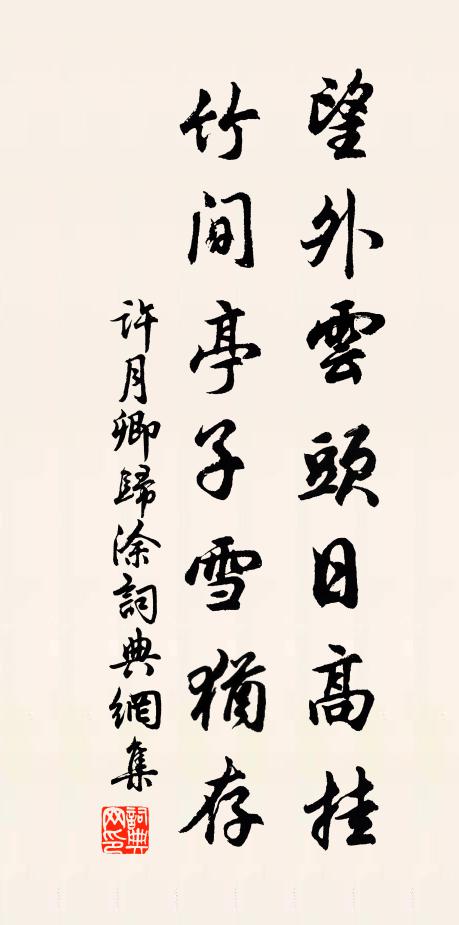 望外雲頭日高挂
竹間亭子雪猶存
許月卿歸涂詞典網集
詞典网印